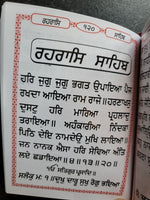 ਰਹਰਾਸਿ ੧੨੦ ਸਾਹਿਬ
ਰਹਰਾਸਿ ਸਾਹਿਬ
ਹਰਿ ਜੁਗੁ ਜੁਗੁ ਭਗਤ ਉਪਾਇਆ ਪੈਜ
ਰਖਦਾ ਆਇਆ ਰਾਮ ਰਾਜੇ॥ ਹਰਣਾਖਸੁ
ਦੁਸਟੁ ਹਰਿ ਮਾਰਿਆ ਪ੍ਰਹਲਾਦੁ
ਤਰਾਇਆ॥ ਅਹੰਕਾਰੀਆ ਨਿੰਦਕਾ
ਪਿਠਿ ਦੇਇ ਨਾਮਦੇਉ ਮੁਖਿ ਲਾਇਆ॥
ਜਨ ਨਾਨਕ ਐਸਾ ਹਰਿ ਸੇਵਿਆ ਅੰਤਿ
ਲਏ ਛਡਾਇਆ॥੪॥੧੩॥੨੦॥
ੴ ਸਤਿਗੁਰ ਪ੍ਰਸਾਦਿ॥
ਸਲੋਕੁ ਮਃ ੧॥ ਦੁਖੁ ਦਾਰੂ ਸੁਖੁ ਰੋਗੁ ਭਇਆ